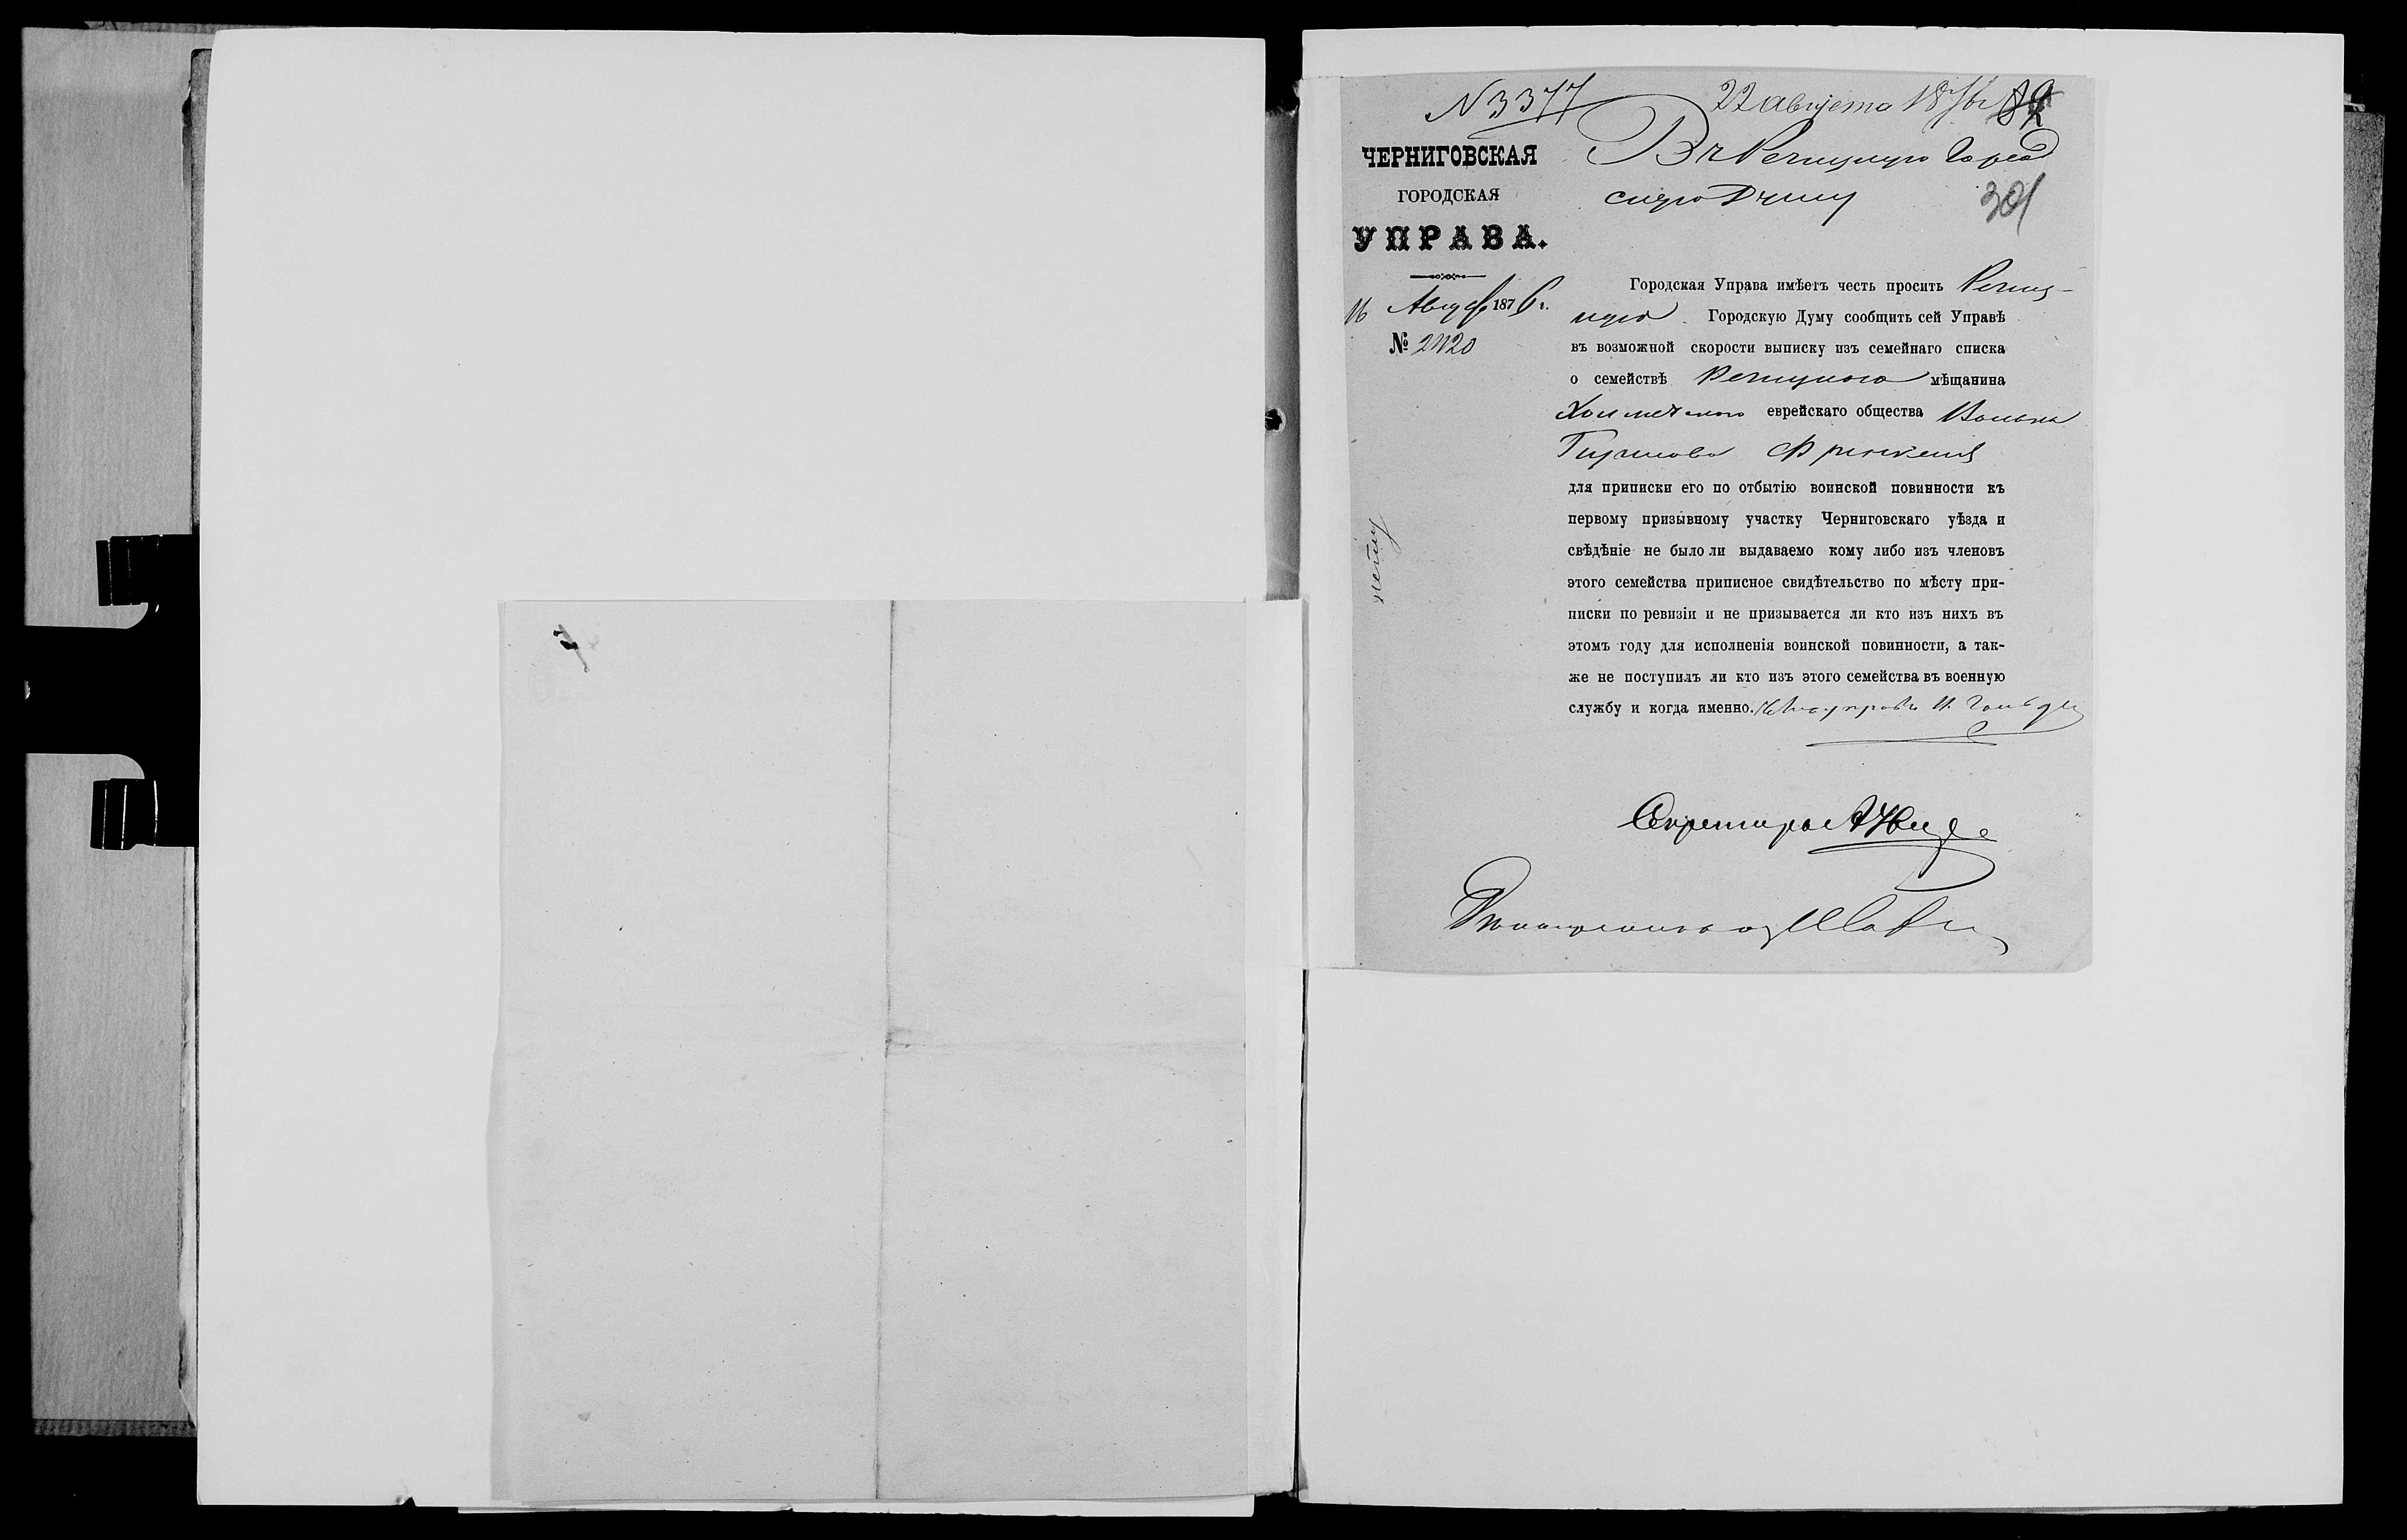 N 3377
22 августа 1876 г
ЧЕРНИГОВСКАЯ
ГОРОДСКАЯ
УПРАВА.
16 Августа 1876 г.
№ 2420
Въ Речицкую Город
скую Думу
301
Городская Управа имѣетъ честь просить Речиц-
кую Городскую Думу сообщить сей Управѣ
въ возможной скорости выписку изъ семейнаго списка
о семействѣ Речицкого мѣщанина
еврейскаго общества
для приписки его по отбытію воинской повинности къ
первому призывному участку Черниговскаго уѣзда и
свѣдѣніе не было ли выдаваемо кому либо изъ членовъ
этого семейства приписное свидѣтельство по мѣсту при-
писки по ревизіи и не призывается ли кто изъ нихъ въ
этомъ году для исполненія воинской повинности, а так-
же не поступилъ ли кто изъ этого семейства въ военную
службу и когда именно.
Секретарь